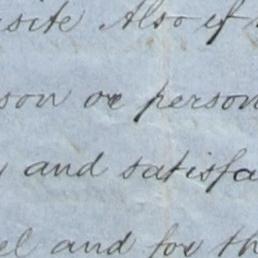 site Also if
son or person
and satisfa
el and for th